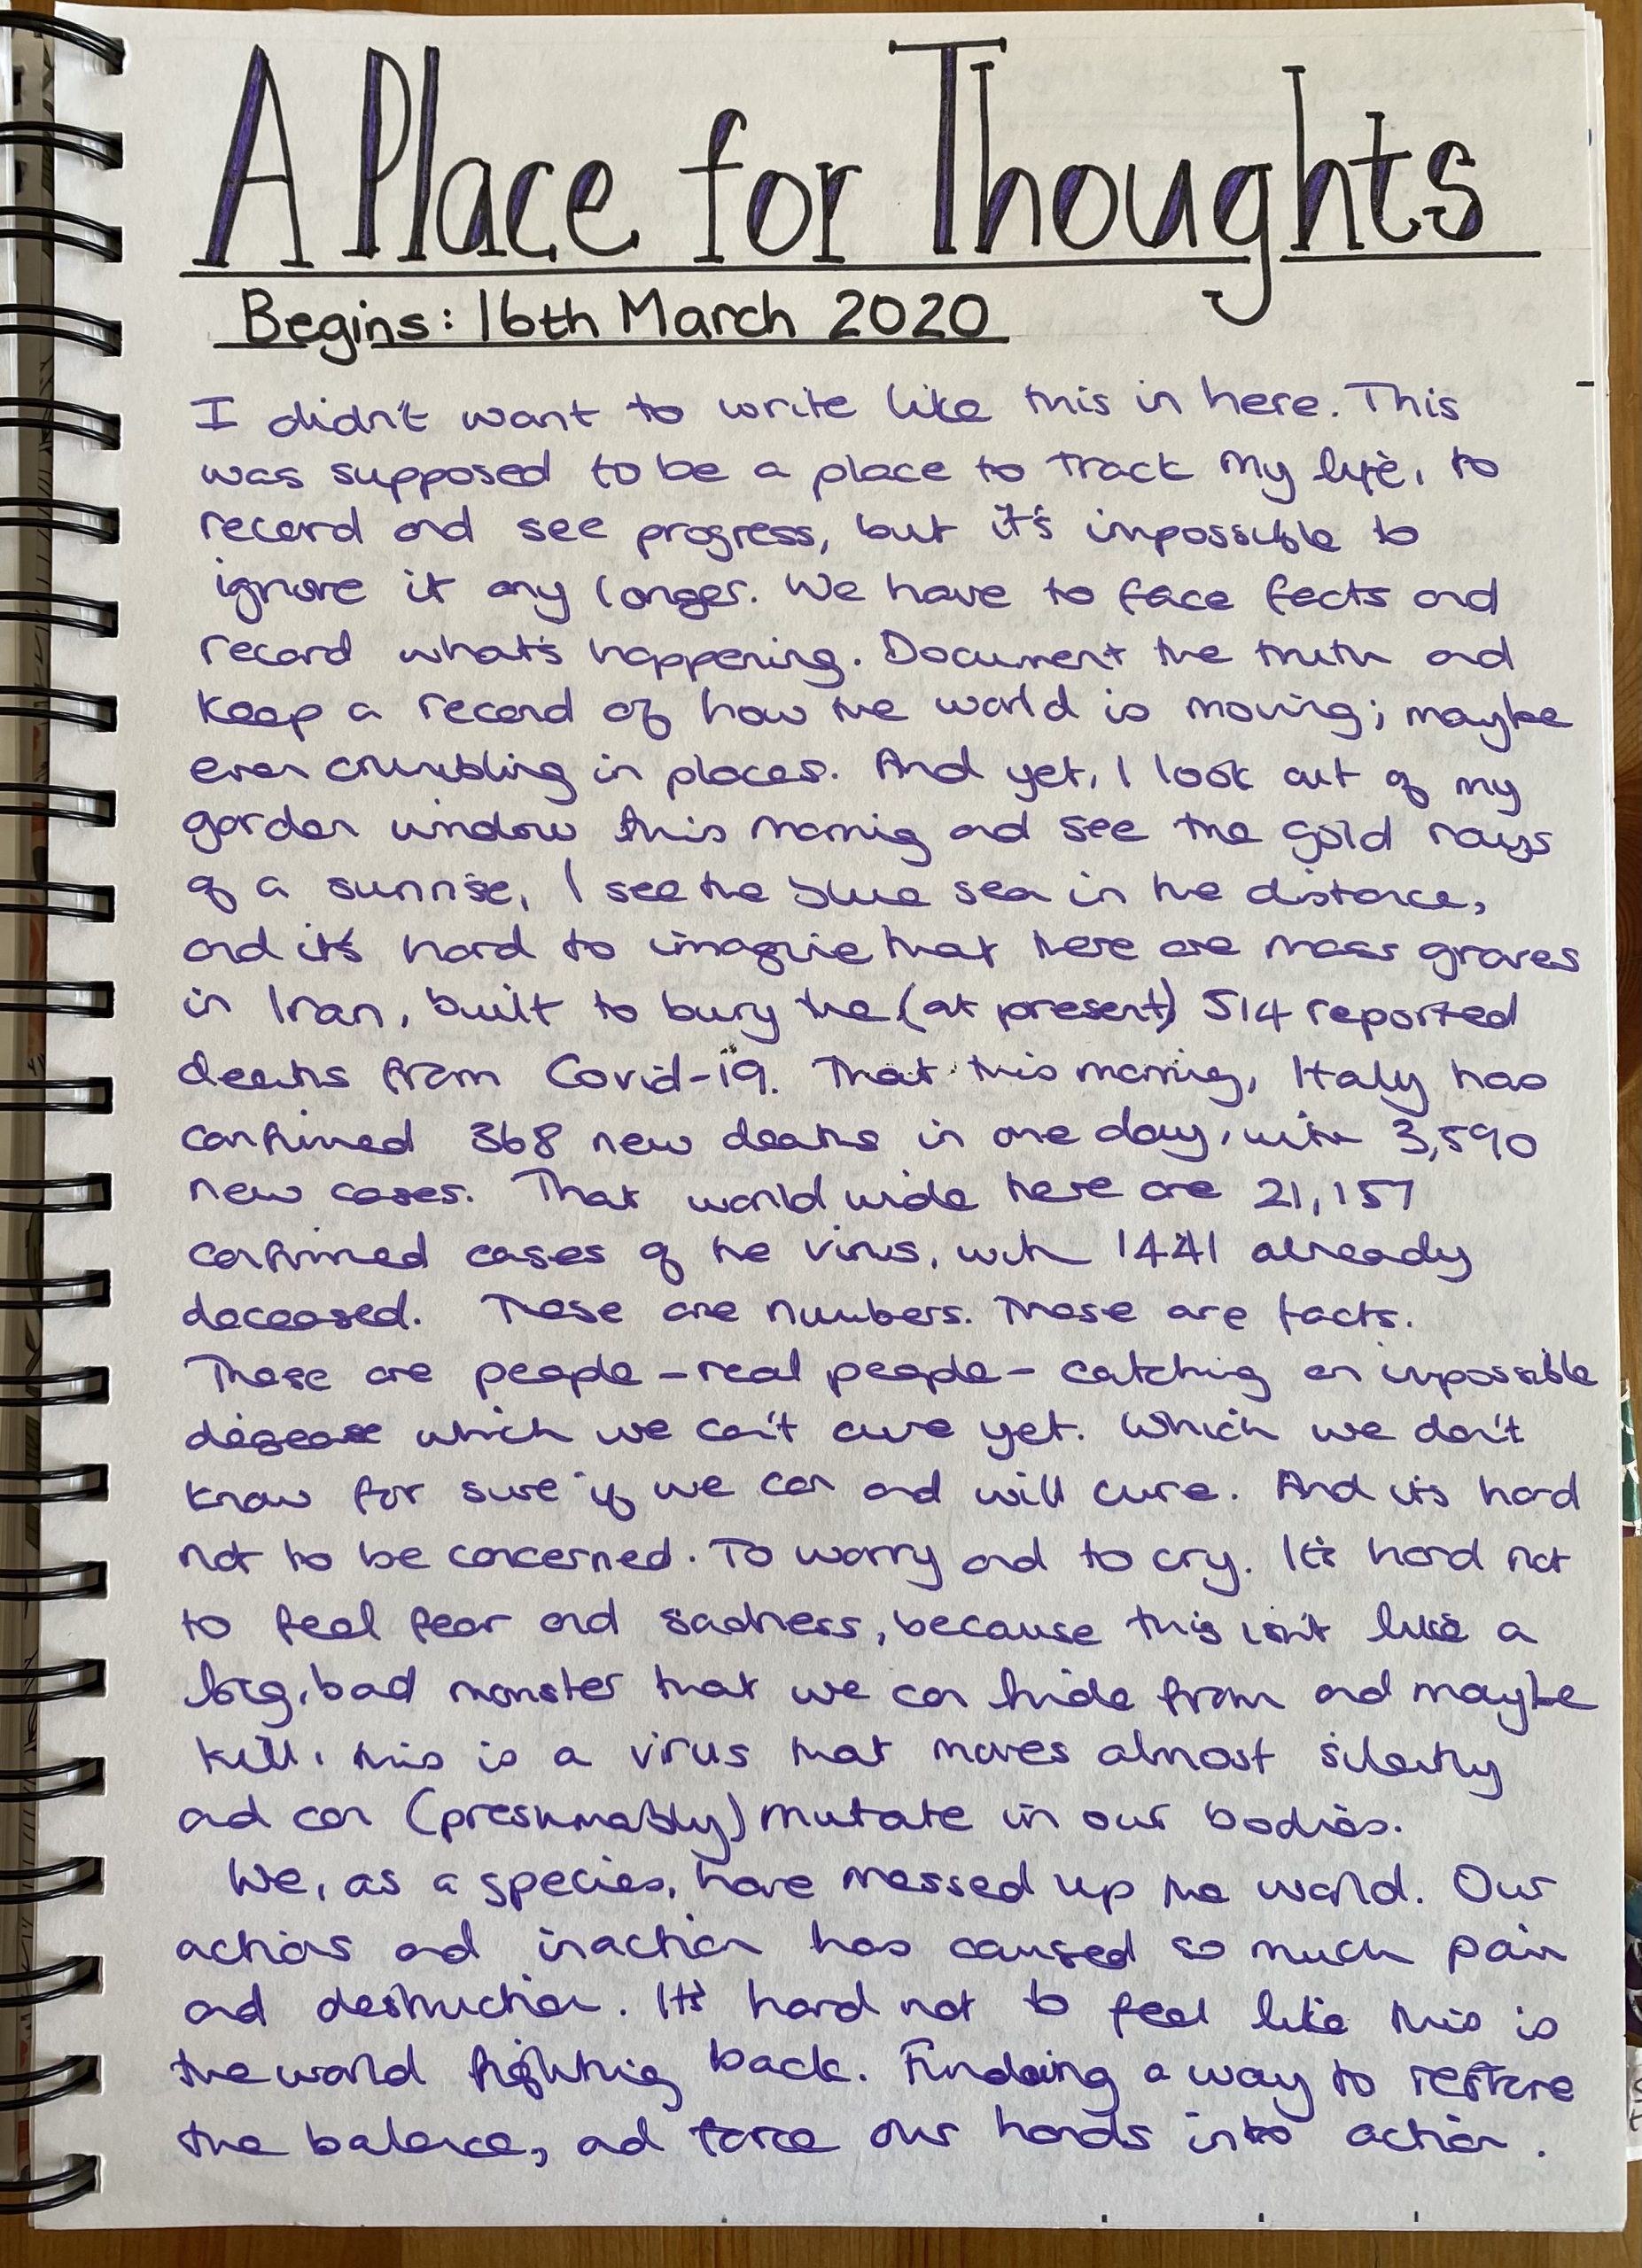 A Place for Thoughts
Begins: 16th March 2020
I didn't want to write like this in here. This
was supposed to be a place to track my life, to
record and see progress, but it's impossible to
ignore it any longer. We have to face facts and
record what's happening. Document the truth and
keep a record of how the world is moving; maybe
even crumbling in places. And yet, I look out of my
garden window this morning and see the gold rays
of a sunrise, I see the blue sea in the distance,
and it's hard to imagine that there are mass graves
in Iran, built to bury the (at present) 514 reported
deaths from Covid-19. That this morning, Italy has
confirmed 368 new deaths in one day, with 3,590
new cases. That world wide there are 21,157
confirmed cases of the virus, with 1441 already
deceased. These are numbers. These are facts.
These are people - real people - catching an impossible
disease which we can't cure yet. Which we don't
know for sure if we can and will cure. And it's hard
not to be concerned. To worry and to cry. It's hard not
to feel fear and sadness, because this isn't like a
big, bad monster that we can hide from and maybe
kill, this is a virus that moves almost silently
and can (presumably) mutate in our bodies.
We, as a species, have messed up the world. Our
actions and inaction has caused so much pain
and destruction. It's hard not to feel like this is
the world fighting back. Finding a way to restore
the balance, and force our hands into action.